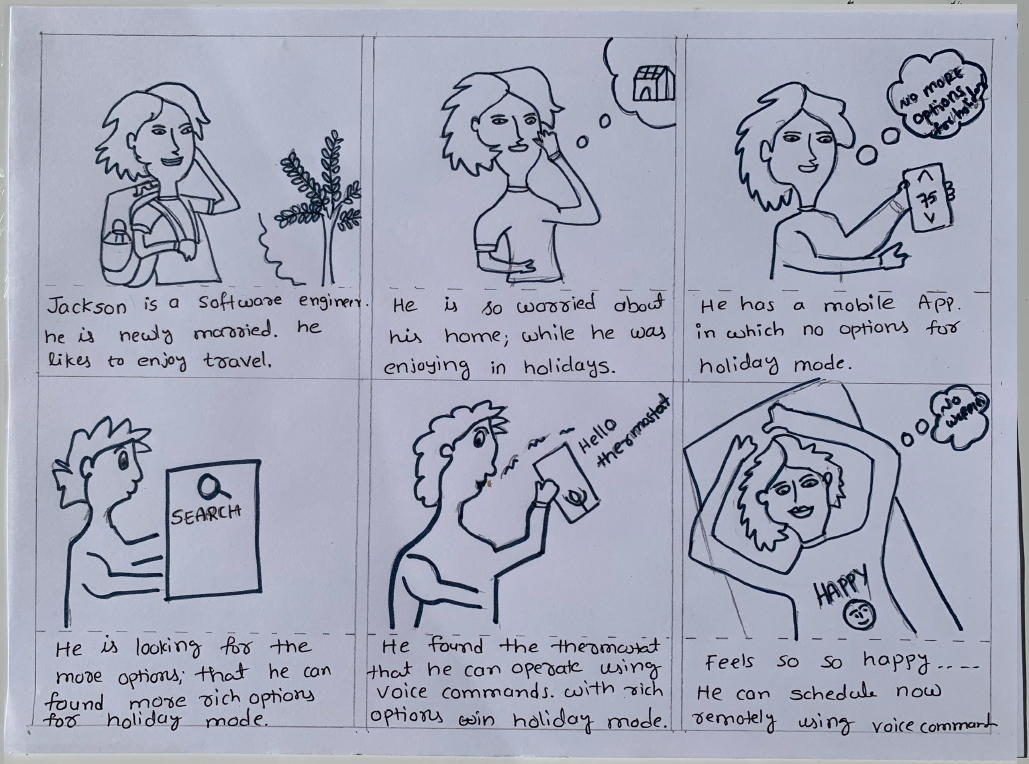 Jackson is a Software enginerr.
he is newly married. he
likes to enjoy travel.
He is so worried about
his home; while he was
enjoying in holidays.
NO MORE
options
for holiday
75
He has a mobile App.
in which no options for
holiday mode.
SEARCH
He is looking for the
more options; that he can
found more rich options
for holiday mode.
Hello
thermostat
He found the thermostat
that he can operate using
voice commands. with rich
options win holiday mode.
NO
HAPPY
Feels so so happy.....
He can schedule now
remotely using voice command